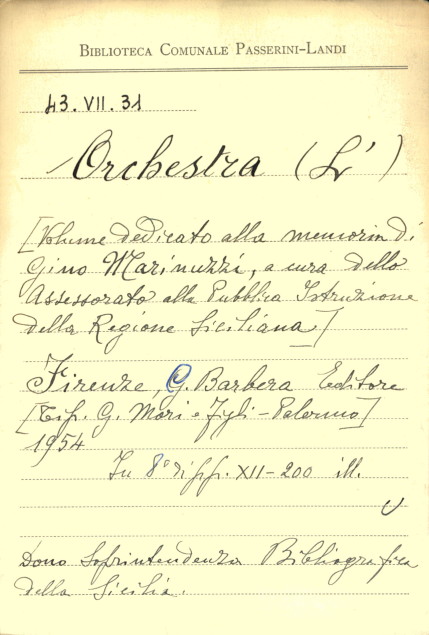 BIBLIOTECA COMUNALE PASSERINI-LANDI
43. VII. 31
Orchestra (L')
[Volume dedicato alla memoria di
Gino Marinuzzi, a cura dello
Assessorato alla Pubblica Istruzione
della Regione Siciliana]
Firenze, G. Barbera Editore
[Tip. G. Mori e Figli - Palermo]
1954
In 8° di pp. XII-200 ill.
U
Dono Soprintendenza Bibliografica
della Sicilia.